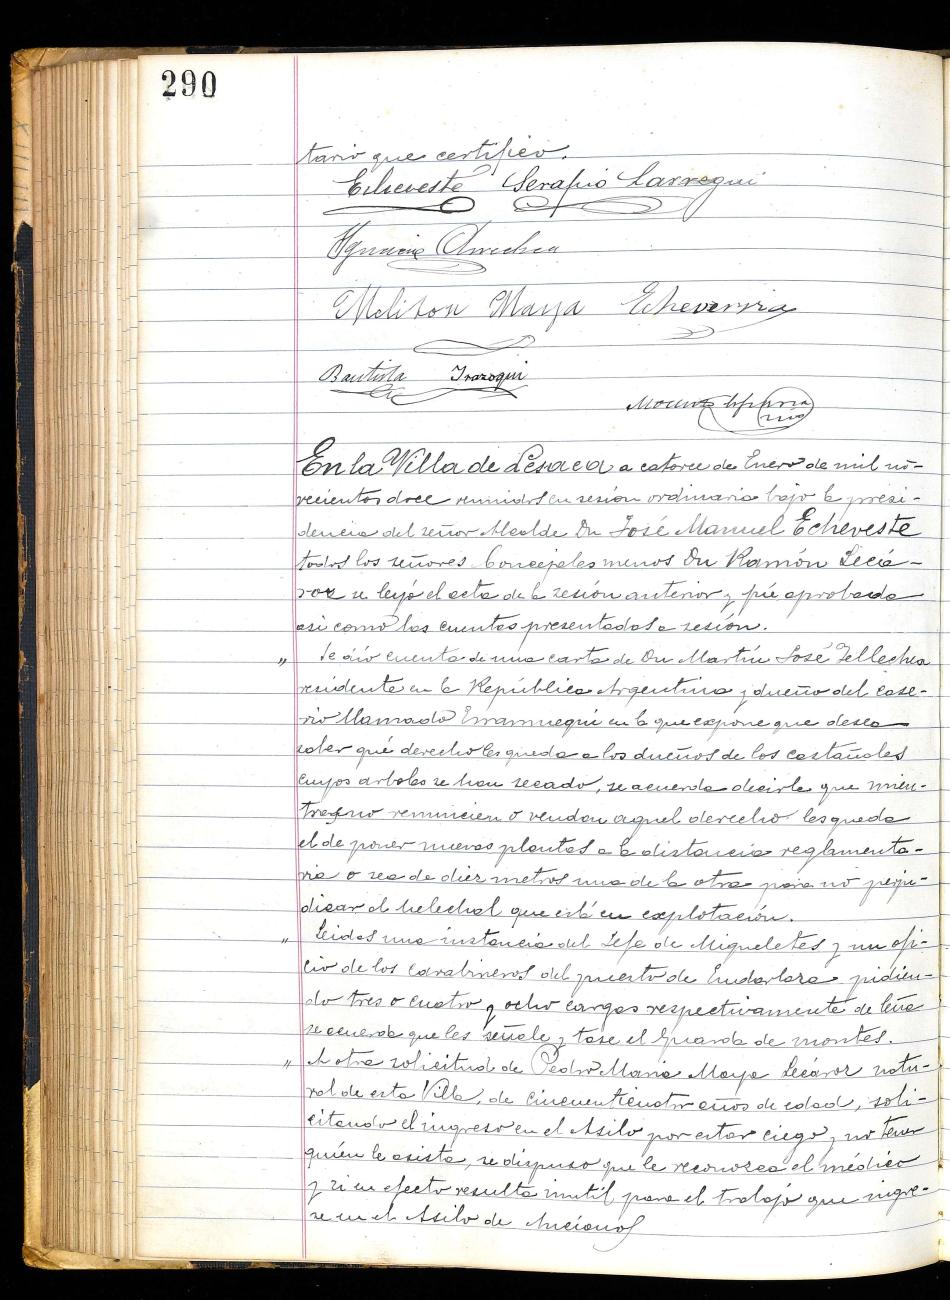 290
tario que certifico.
Echeveste Serapio Larregui
Ygnacio Arrechea
Meliton Maya Echeverria
Bautista Irazoqui
En la Villa de Lesaca a catorce de Enero de mil no-
vecientos doce reunidos en sesión ordinaria bajo la presi-
dencia del señor Alcalde Dn José Manuel Echeveste
todos los señores Concejales menos Dn Ramón Lecá-
roz se leyó el acta de la sesión anterior y fué aprobada
asi como las cuentas presentadas a sesión.
" Se dió cuenta de una carta de Dn Martín José Tellechea
residente en la República Argentina y dueño del case-
rio llamado Erramuegui en la que expone que desea
saber qué derecho les queda a los dueños de los castañales
cuyos arboles se han secado, se acuerda decirle que mien-
tras no renuncien o vendan aquel derecho les queda
el de poner nuevas plantas a la distancia reglamenta-
ria o sea de diez metros una de la otra para no perju-
dicar el helechal que está en explotación.
" Leidas una instancia del Jefe de Migueletes y un ofi-
cio de los carabineros del puerto de Endarlaza pidien-
do tres o cuatro y ocho cargas respectivamente de leña
se acuerda que les señale y tase el Guarda de montes.
" A otra solicitud de Pedro Maria Maya Lecároz natu-
ral de esta Villa, de cincuenticuatro años de edad, soli-
citando el ingreso en el Asilo por estar ciego y no tener
quién le asista, se dispuso que le reconozca el médico
y si en efecto resulta inutil para el trabajo que ingre-
se en el Asilo de Ancianos